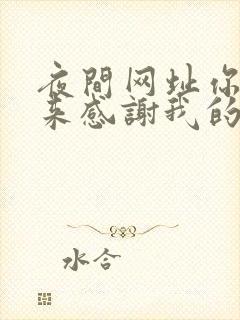 夜間网址你
来感謝我的
水合